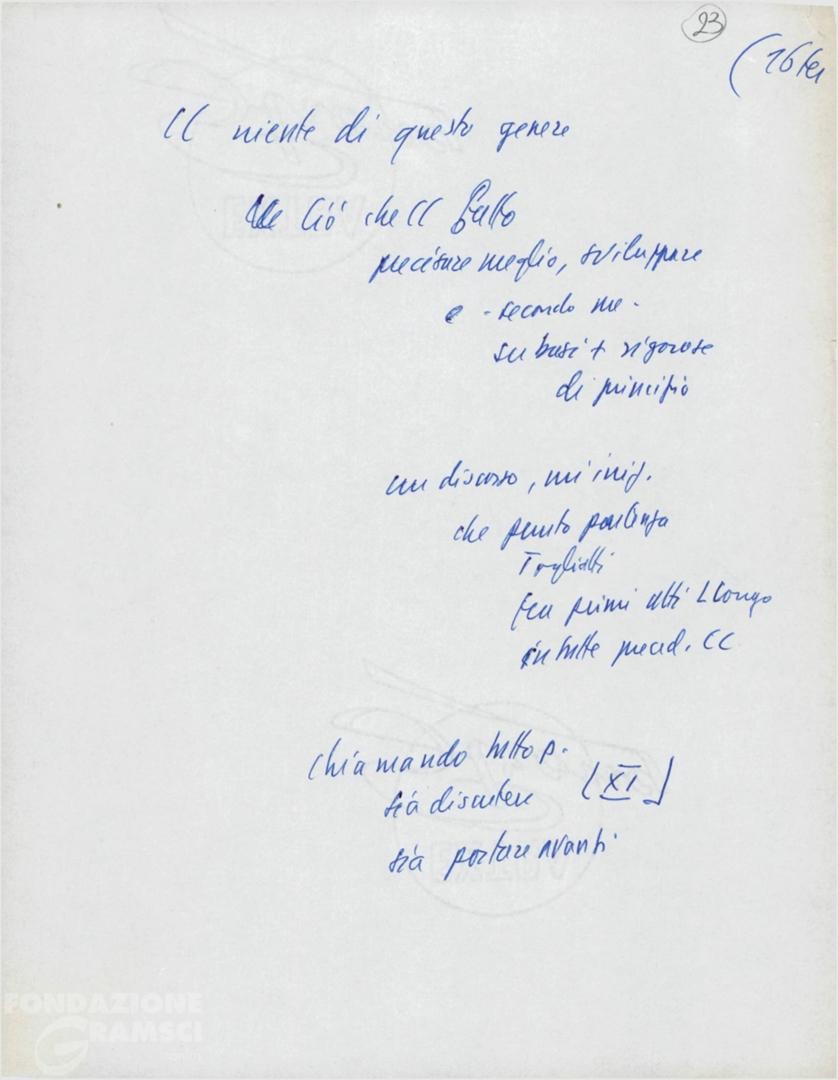 23
(16
CC niente di questo genere
Ciò che CC fatto
precisare meglio, sviluppare
e - secondo me -
su basi + rigorose
di principio
un discorso, mi inig.
che punto partenza
Togliatti
fra primi atti LLongo
in tutte preced. CC
chiamando tutto p.
sia discutere [XI]
sia portare avanti
FONDAZIONE
GRAMSCI